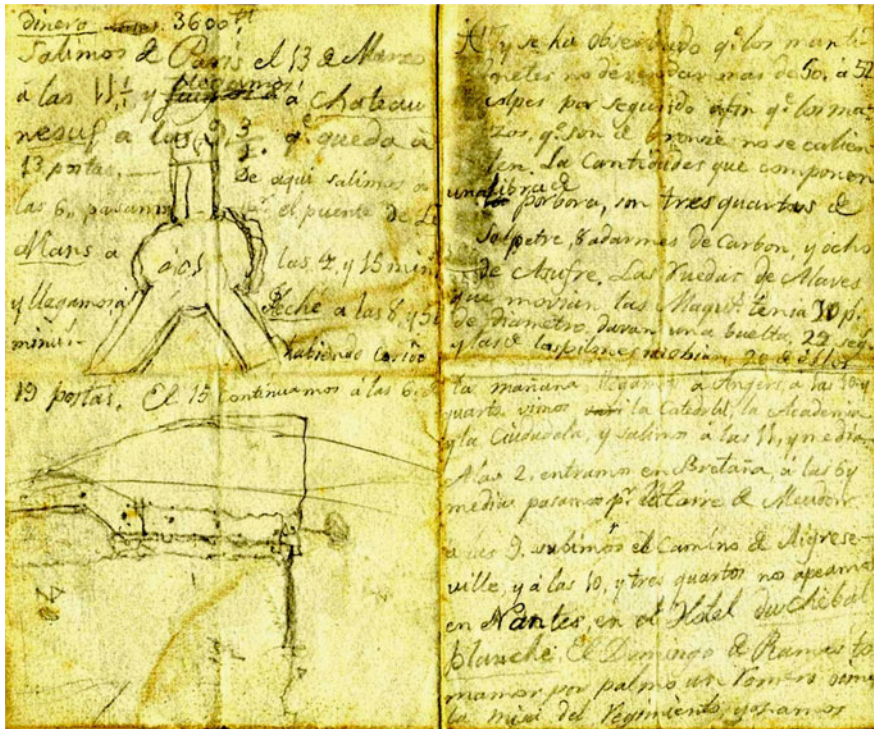 dinero 3600
Salimos de Paris el 13 de Marzo
á las 11 1/2 y llegamos á Chateau
neuf, a las 9 3/2. qe. quedo á
13 postas.
De aqui salimos a
las 6, pasamos el puente de Le
Mans a las 7, y 15 min
y llegamos á Fleche a las 8, y 5
minu. habiendo corrido
19 postas. El 15 continuamos á las 6, de
y se ha observado qe. los marti
netes no deven dar mas de 50. á 52
golpes por segundo afin qe. los ma
zos, qe. son de bronze no se calien
ten. La Cantidades que componen
una libra de
porbora, son tres quartos de
Salpetre, 8 adarmes de Carbon, y ocho
de Asufre. Las Ruedas de Alaves
que movian las Maqs. tenia 10 p.
de diametro, davan una buelta, 22 seg
y las de los pilones
la mañana llegamos á Angers, a las 10 y
quarto vimos la Catedral, la Academia
y la Ciudadela, y salimos á las 11, y media
A las 2, entramos en Bretaña, á las 6 y
media pasamos pr. la torre de
á las 9. subimos el Camino de Aigrese-
ville, y á las 10, y tres quartos nos apeamos
en Nantes, en el Hotel du Chebal
blanche. El Domingo de Ramos to
mamos por palmo un Romero oimos
la misa del Regimiento, y pasamos